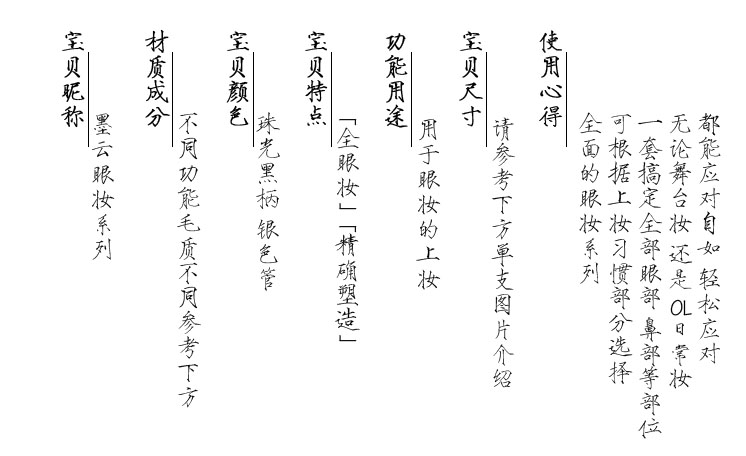 宝贝昵称
墨云眼妆系列
材质成分
不同功能毛质不同参考下方
宝贝颜色
珠光黑柄 银色管
宝贝特点
「全眼妆」「精确塑造」
功能用途
用于眼妆的上妆
宝贝尺寸
请参考下方单支图片介绍
使用心得
全面的眼妆系列
可根据上妆习惯部分选择
一套搞定全部眼部 鼻部等部位
无论舞台妆 还是OL日常妆
都能应对自如 轻松应对